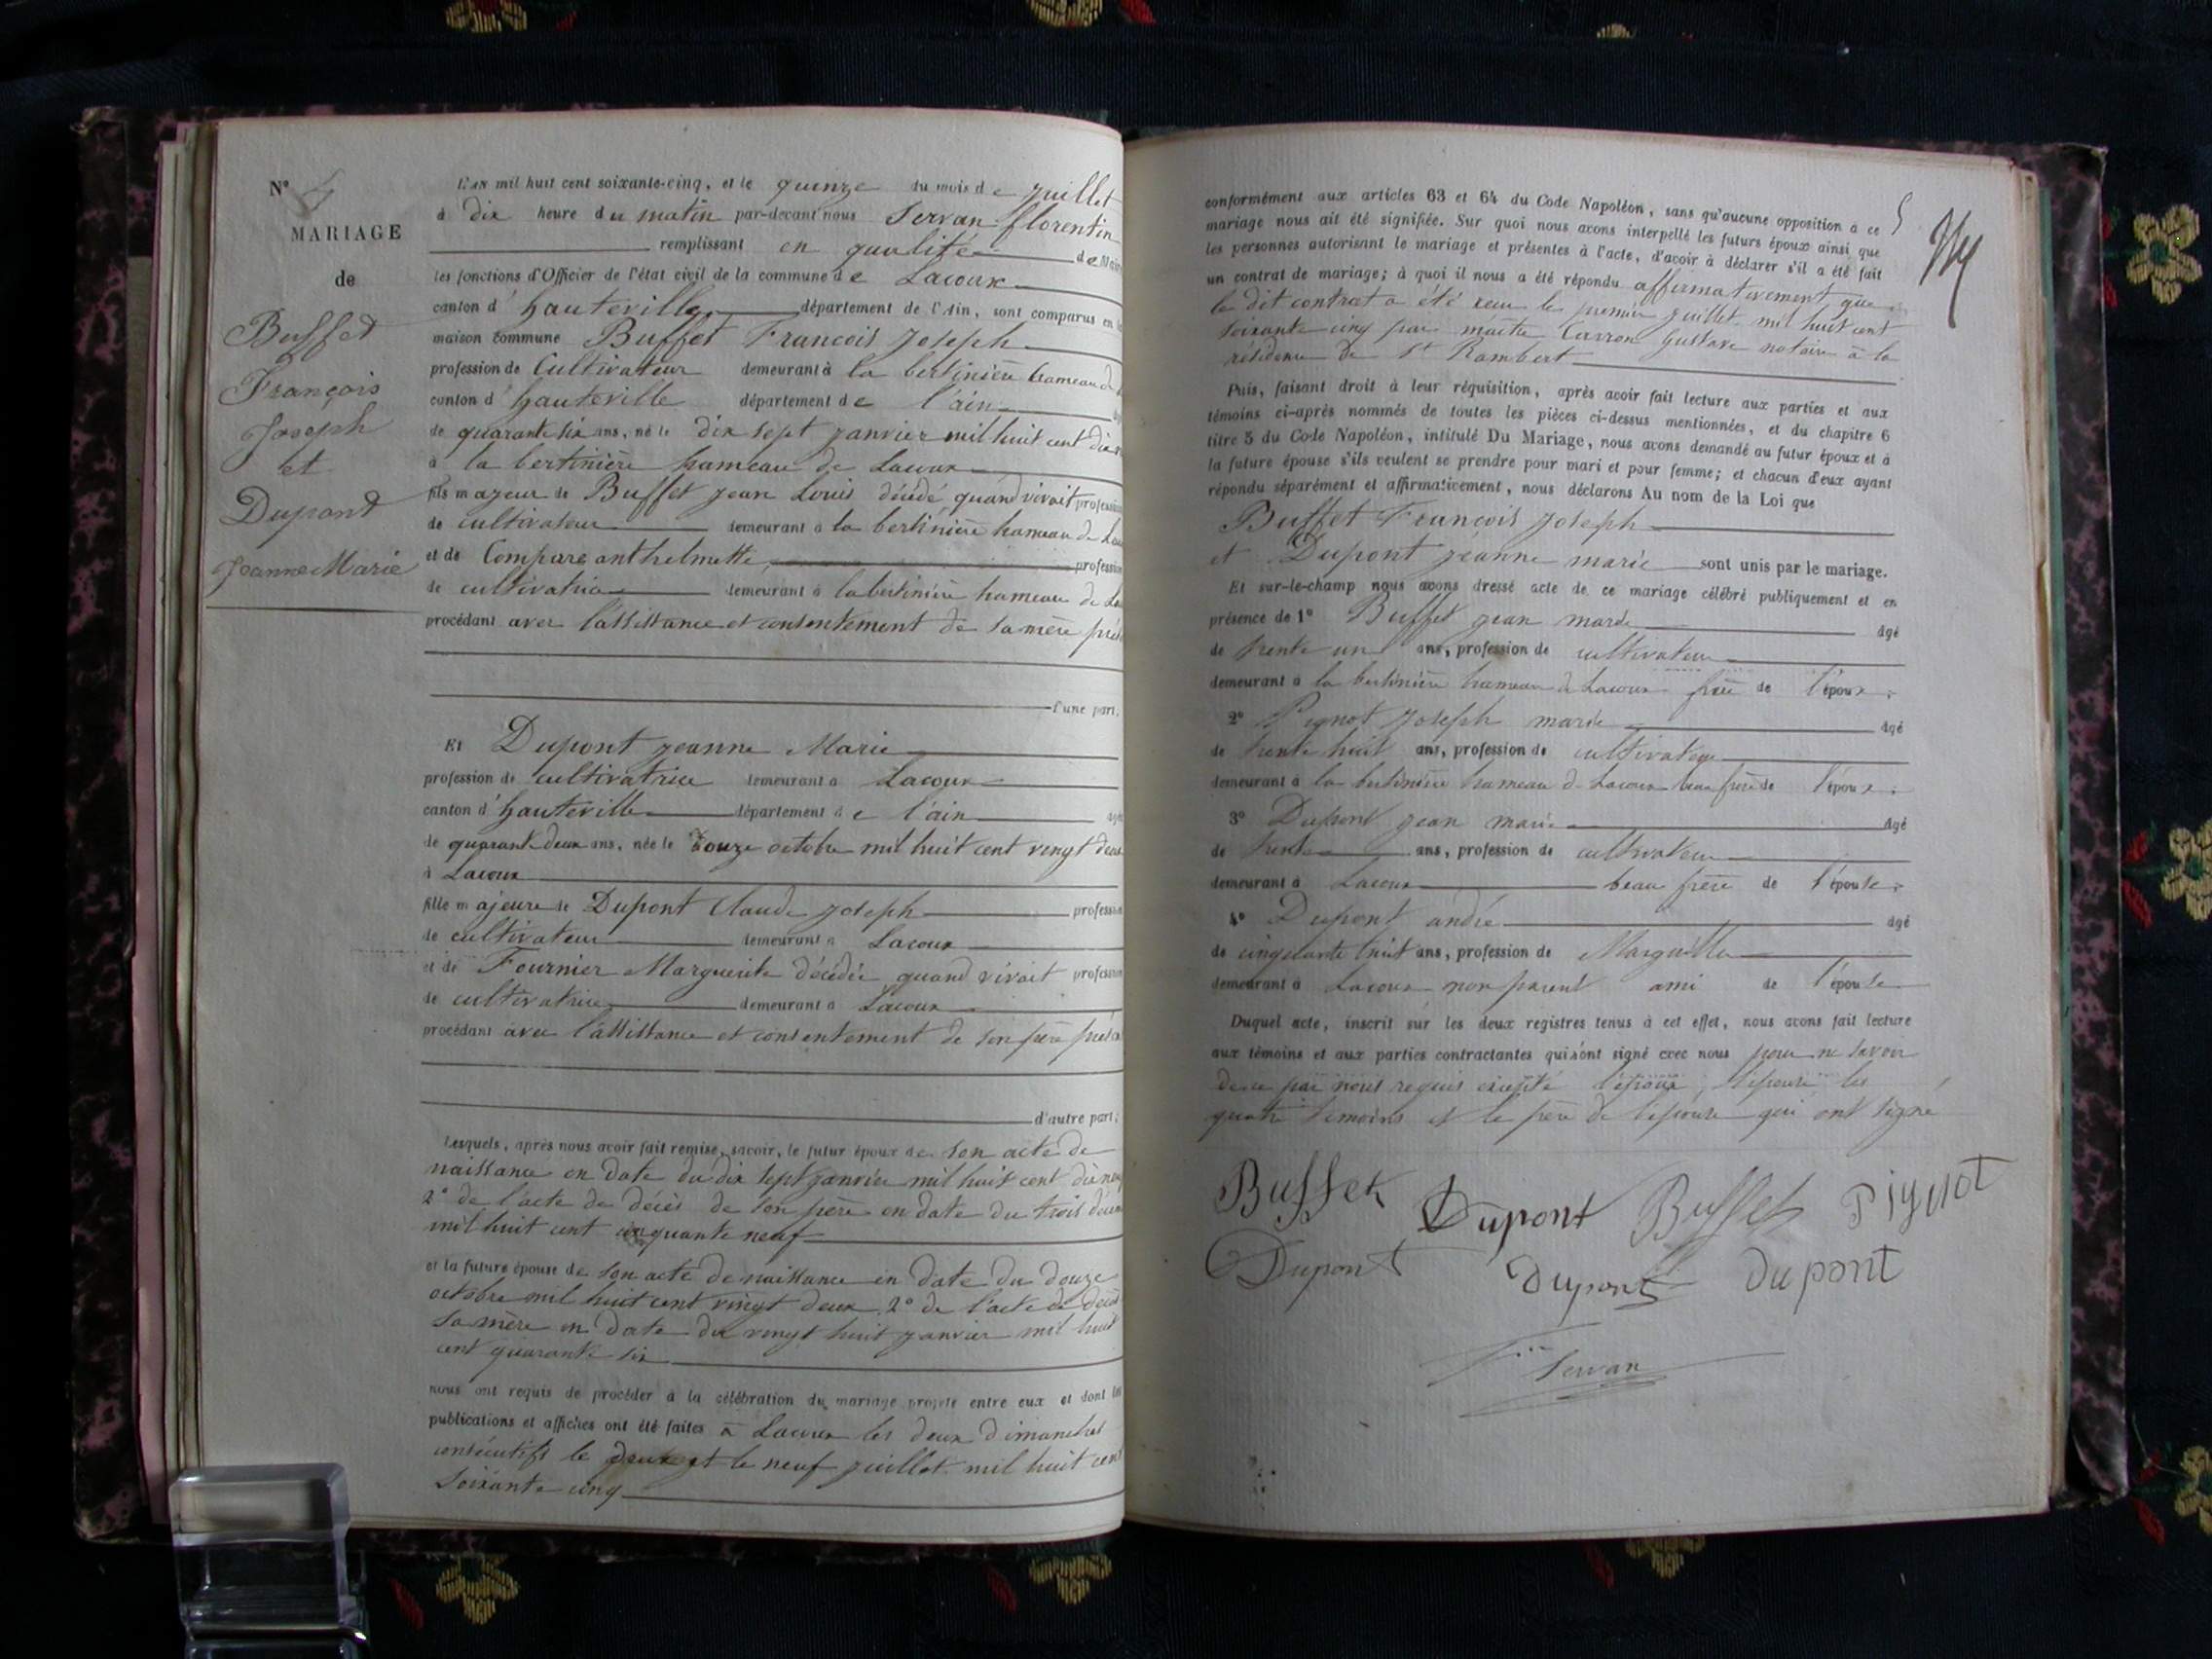 N° 4
MARIAGE
de
Buffet
François
Joseph
et
Dupont
Jeanne Marie
L'AN mil huit cent soixante-cinq, et le quinze du mois de juillet
à dix heure du matin par-devant nous Servan florentin
remplissant en qualité de Maire
les fonctions d'Officier de l'état civil de la commune de Lacoux
canton d'hauteville département de l'Ain, sont comparus en la
maison commune Buffet Francois Joseph
profession de Cultivateur demeurant à la bertinière hameau de
canton d'hauteville département de l'ain
de quarante six ans, né le dix sept janvier mil huit cent dix
à la bertinière hameau de Lacoux
fils majeur de Buffet jean Louis décédé quand vivait profession
de cultivateur demeurant à la bertinière hameau de
et de Compare anthelmette, profession
de cultivatrice demeurant à la bertinière hameau de
procédant avec l'assistance et consentement de sa mère
d'une part,
Et Dupont jeanne Marie
profession de cultivatrice demeurant à Lacoux
canton d'hauteville département de l'ain agée
de quarante deux ans, née le douze octobre mil huit cent vingt deux
à Lacoux
fille majeure de Dupont Claude joseph profession
de cultivateur demeurant à Lacoux
et de Fournier Marguerite décédée quand vivait profession
de cultivatrice demeurant à Lacoux
procédant avec l'assistance et consentement de son père
d'autre part;
Lesquels, après nous avoir fait remise, savoir, le futur époux de son acte de
naissance en date du dix sept janvier mil huit cent dix neuf
2° de l'acte de décès de son père en date du trois
mil huit cent cinquante neuf
et la future épouse de son acte de naissance en date du douze
octobre mil huit cent vingt deux 2° de l'acte de décès
sa mère en date du vingt huit janvier mil huit
cent quarante six
nous ont requis de procéder à la célébration du mariage projeté entre eux et dont les
publications et affiches ont été faites à Lacoux les deux dimanches
consécutifs le deux et le neuf juillet mil huit cent
soixante cinq
conformément aux articles 63 et 64 du Code Napoléon, sans qu'aucune opposition à ce
mariage nous ait été signifiée. Sur quoi nous avons interpellé les futurs époux ainsi que
les personnes autorisant le mariage et présentes à l'acte, d'avoir à déclarer s'il a été fait
un contrat de mariage; à quoi il nous a été répondu affirmativement que
le dit contrat a été reçu le premier juillet mil huit cent
soixante cinq par maître Carron Gustave notaire à la
résidence de St Rambert
Puis, faisant droit à leur réquisition, après avoir fait lecture aux parties et aux
témoins ci-après nommés de toutes les pièces ci-dessus mentionnées, et du chapitre 6
titre 5 du Code Napoléon, intitulé Du Mariage, nous avons demandé au futur époux et à
la future épouse s'ils veulent se prendre pour mari et pour femme; et chacun d'eux ayant
répondu séparément et affirmativement, nous déclarons Au nom de la Loi que
Buffet Francois Joseph
et Dupont jeanne marie sont unis par le mariage.
Et sur-le-champ nous avons dressé acte de ce mariage célébré publiquement et en
présence de 1° Buffet jean marie âgé
de trente un ans, profession de cultivateur
demeurant à la bertinière hameau de Lacoux frère de l'époux;
2° Pignot Joseph marie âgé
de trente huit ans, profession de cultivateur
demeurant à la bertinière hameau de Lacoux beau frère de l'époux;
3° Dupont jean marie âgé
de trente ans, profession de cultivateur
demeurant à Lacoux beau frère de l'épouse;
4° Dupont andré âgé
de cinquante huit ans, profession de
demeurant à Lacoux non parent ami de l'épouse
Duquel acte, inscrit sur les deux registres tenus à cet effet, nous avons fait lecture
aux témoins et aux parties contractantes qui s'ont signé avec nous pour ne savoir
de ce par nous requis excepté l'époux, l'épouse les
quatre témoins et le père de l'épouse qui ont signé
Buffet Dupont Buffet Pignot
Dupont Dupont Dupont
Servan